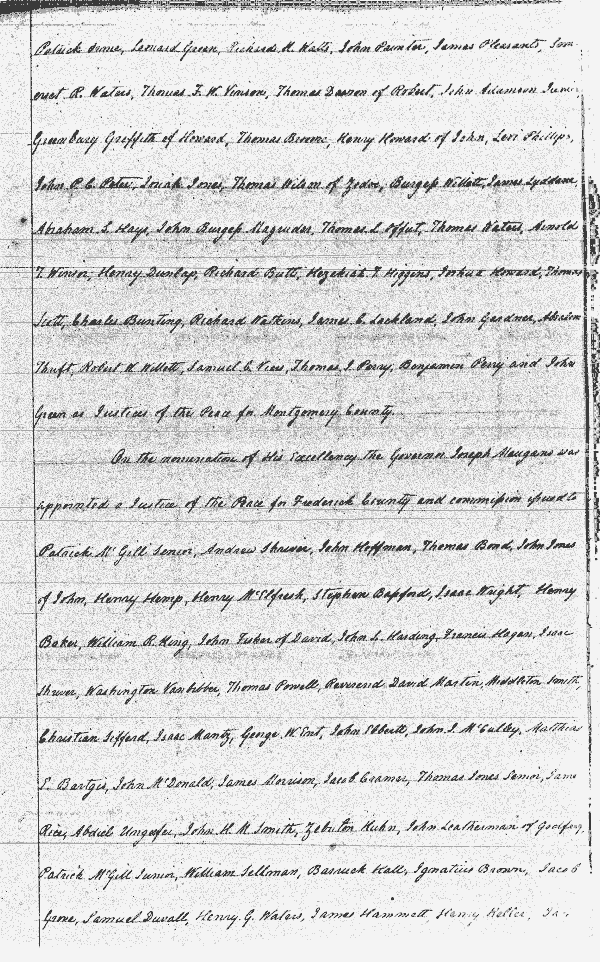 Patrick Orme, Leonard Green, Richard H. Watts, John Painter, James Pleasants, Som-
erset R. Waters, Thomas F. W. Vinson, Thomas Dawson of Robert, John Adamson Junior,
Greenbury Griffith of Howard, Thomas Broome, Henry Howard of John, Levi Phillips,
John P. C. Peter, Josiah Jones, Thomas Wilson of Zadoc, Burgess Willett, James Lyddane,
Abraham S. Hays, John Burgess Magruder, Thomas L Offut, Thomas Waters, Arnold
T. Winsor, Henry Dunlap, Richard Butt, Hezekiah T. Higgins, Joshua Howard, Thomas
Scott, Charles Bunting, Richard Watkins, James C. Lackland, John Gardner,
Robert W Willett, Samuel C. Viers, Thomas J. Perry, Benjamin Perry and John
Green as Justices of the Peace for Montgomery County.
On the nomination of His Excellency the Governor Joseph Maugans was
appointed a Justice of the Peace for Frederick County and commission issued to
Patrick McGill Senior, Andrew Shriver, John Hoffman, Thomas Bond, John Jones
of John, Henry Hemp, Henry McElfresh, Stephen Bassford, Isaac Wright, Henry
Baker, William R. King, John Fisher of David, John L. Harding, Francis Hagan, Isaac
Shriver, Washington Vanbibber, Thomas Powell, Reverend David Martin, Middleton Smith,
Christian Sifford, Isaac Mantz, George W. Ent, John Ebbertt, John J. McCulley, Matthias
E. Bartgis, John McDonald, James Morrison, Jacob Cramer, Thomas Jones Senior, James
Rice, Abdiel Unkefer, John H. M. Smith, Zebulon Kuhn, John Leatherman of Godfrey,
Patrick McGill Junior, William Sellman, Barruck Hall, Ignatius Brown, Jacob
Grove, Samuel Duvall, Henry G. Waters, James Hammett, Henry Keller,